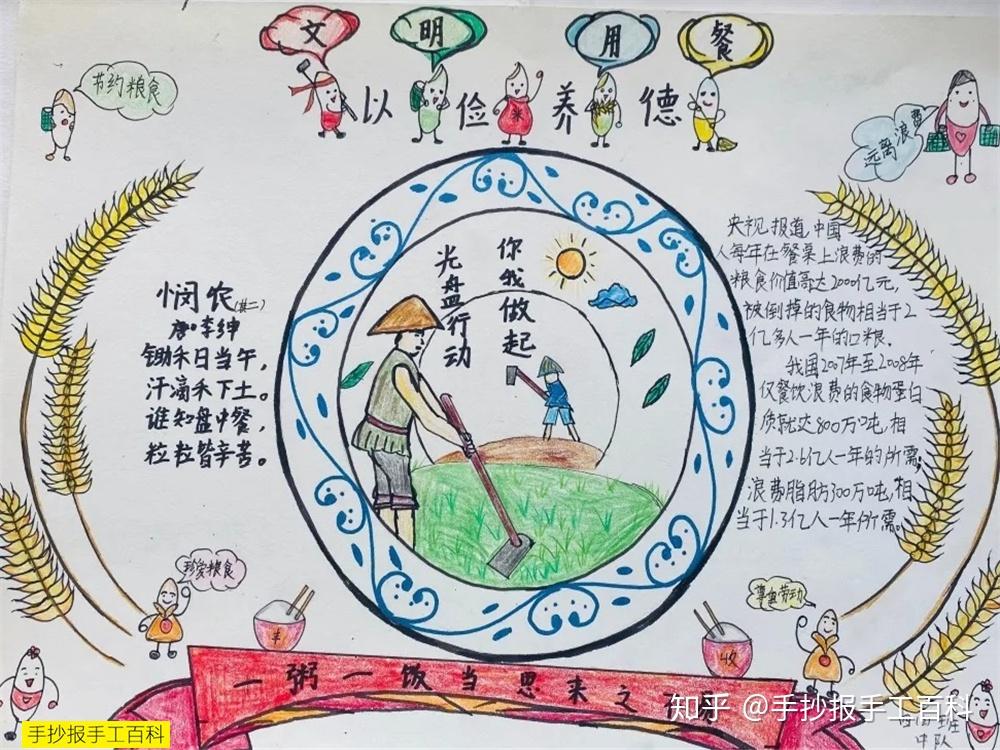 文明用餐
以俭养德
节约粮食
远离浪费
你我做起
光盘行动
悯农(其二)
唐·李绅
锄禾日当午,
汗滴禾下土。
谁知盘中餐,
粒粒皆辛苦。
央视报道,中国
人每年在餐桌上浪费的
粮食价值高达2000亿元,
被倒掉的食物相当于2
亿多人一年的口粮.
我国2007年至2008年
仅餐饮浪费的食物蛋白
质就达800万吨,相
当于2.6亿人一年的所需;
浪费脂肪300万吨,相
当于1.3亿人一年所需。
珍爱粮食
劳动
丰
收
一粥一饭当思来之不易
知乎 @手抄报手工百科
手抄报手工百科
班
中队